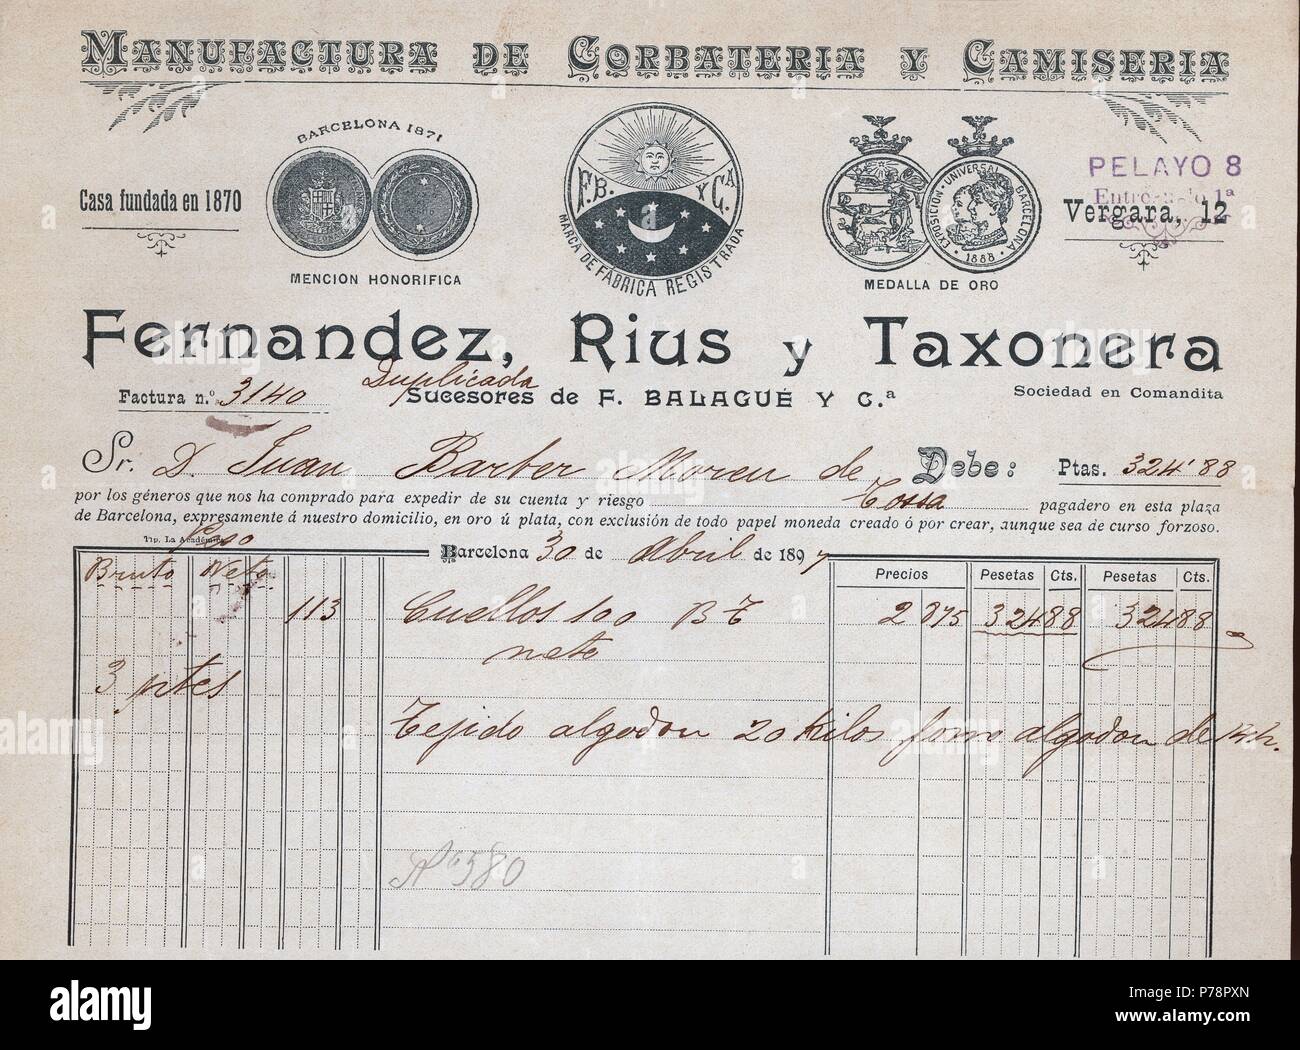 MANUFACTURA DE CORBATERIA Y CAMISERIA
BARCELONA 1871
Casa fundada en 1870
MENCION HONORIFICA
F.B. Y Cª
MARCA DE FÁBRICA REGISTRADA
EXPOSICION UNIVERSAL BARCELONA
1888
MEDALLA DE ORO
PELAYO 8
1ª
Vergara, 12
Fernandez, Rius y Taxonera
Duplicada
Factura n.º 3140
Sucesores de F. BALAGUÉ Y C.ª
Sociedad en Comandita
Sr. D. Juan Barber Moreu de Tossa Debe: Ptas. 324'88
por los géneros que nos ha comprado para expedir de su cuenta y riesgo pagadero en esta plaza
de Barcelona, expresamente á nuestro domicilio, en oro ú plata, con exclusión de todo papel moneda creado ó por crear, aunque sea de curso forzoso.
Tip. La Académica
Peso
Barcelona 30 de Abril de 1897
Bruto Neto
Precios Pesetas Cts. Pesetas Cts.
113 Cuellos 100 B T 2 875 324 88 324 88
neto
3 ptes
Tejido algodon 20 Kilos forro algodon de 14 h.
580
alamy
alamy
Image ID: P78PXN
www.alamy.com